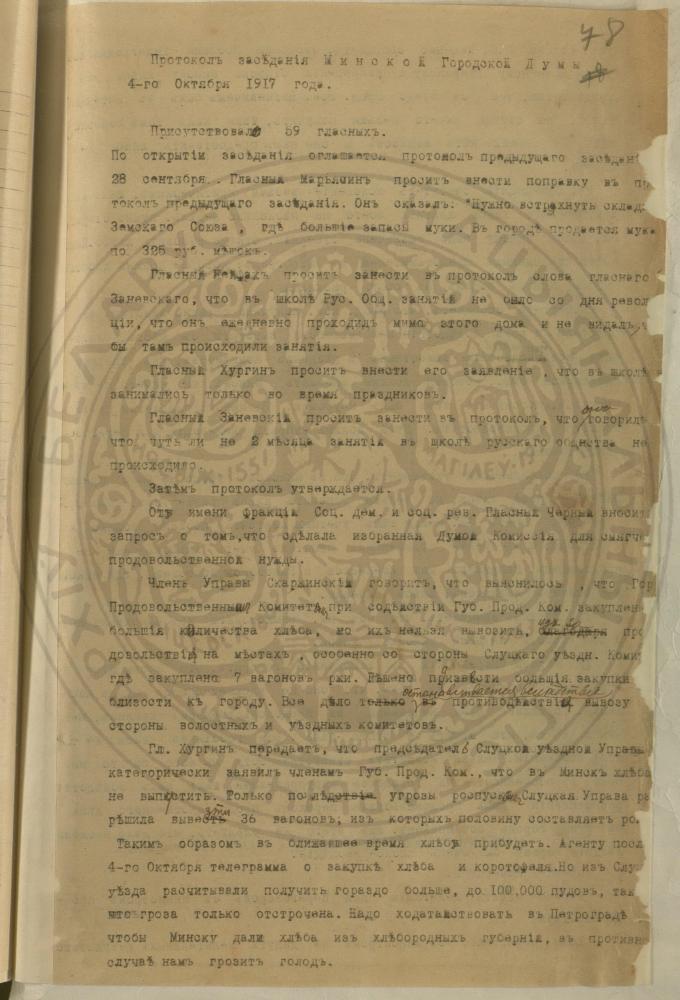 78
Протоколъ засѣданія Минской Городской Думы
4-го Октября 1917 года.
Присутствовало 59 гласныхъ.
По открытіи засѣданія оглашается протоколъ предыдущаго засѣдані
28 сентября. Гласный Марьясинъ проситъ внести поправку въ про
токолъ предыдущаго засѣданія. Онъ сказалъ: "Нужно встряхнуть склад
Земскаго Союза, гдѣ большіе запасы муки. Въ городѣ продается мука
по 325 руб. мѣшокъ.
Гласный проситъ занести въ протоколъ слова гласнаго
Заневскаго, что въ школѣ Рус. Общ. занятій не было со дня револ
ціи, что онъ ежедневно проходилъ мимо этого дома и не видалъ,
бы тамъ происходили занятія.
Гласный Хургинъ проситъ внести его заявленіе, что въ школѣ
занимались только во время праздниковъ.
Гласный Заневскій проситъ занести въ протоколъ, что онъ говорилъ
что чуть ли не 2 мѣсяца занятій въ школѣ русскаго общества не
происходило.
Затѣмъ протоколъ утверждается.
Отъ имени фракцій Соц. дем. и соц. рев. Гласный Черный вноситъ
запросъ о томъ, что сдѣлала избранная Думой Комиссія для смягче
продовольственной нужды.
Членъ Управы Скаржинскій говоритъ, что выяснилось, что Гор
Продовольственный Комитетъ, при содѣйствіи Губ. Прод. Ком. закуплена
большія количества хлѣба, но ихъ нельзя вывозить, благодаря про
довольствія на мѣстахъ, особенно со стороны Слуцкаго уѣздн. Коми
гдѣ закуплено 7 вагоновъ ржи. Рѣшено произвести большія закупки
близости къ городу. Все дѣло только въ останавливается вслѣдствіе противодѣйствія вывозу
стороны волостныхъ и уѣздныхъ комитетовъ.
Гл. Хургинъ передаетъ, что предсѣдатель Слуцкой уѣздной Управы
категорически заявилъ членамъ Губ. Прод. Ком., что въ Минскъ хлѣба
не выпустить. Только послѣдствія угрозы роспуска Слуцкая Управа ра
рѣшила вывезти 36 вагоновъ; изъ которыхъ половину составляетъ ро
Такимъ образомъ въ ближайшее время хлѣбъ прибудетъ. Агенту посл
4-го Октября телеграмма о закупкѣ хлѣба и коротофаля. Но изъ Слу
уѣзда расчитывали получить гораздо больше, до 100,000 пудовъ, так
што угроза только отстрочена. Надо ходатайствовать въ Петроградѣ
чтобы Минску дали хлѣба изъ хлѣбородныхъ губерній, въ противн
случаѣ намъ грозитъ голодъ.